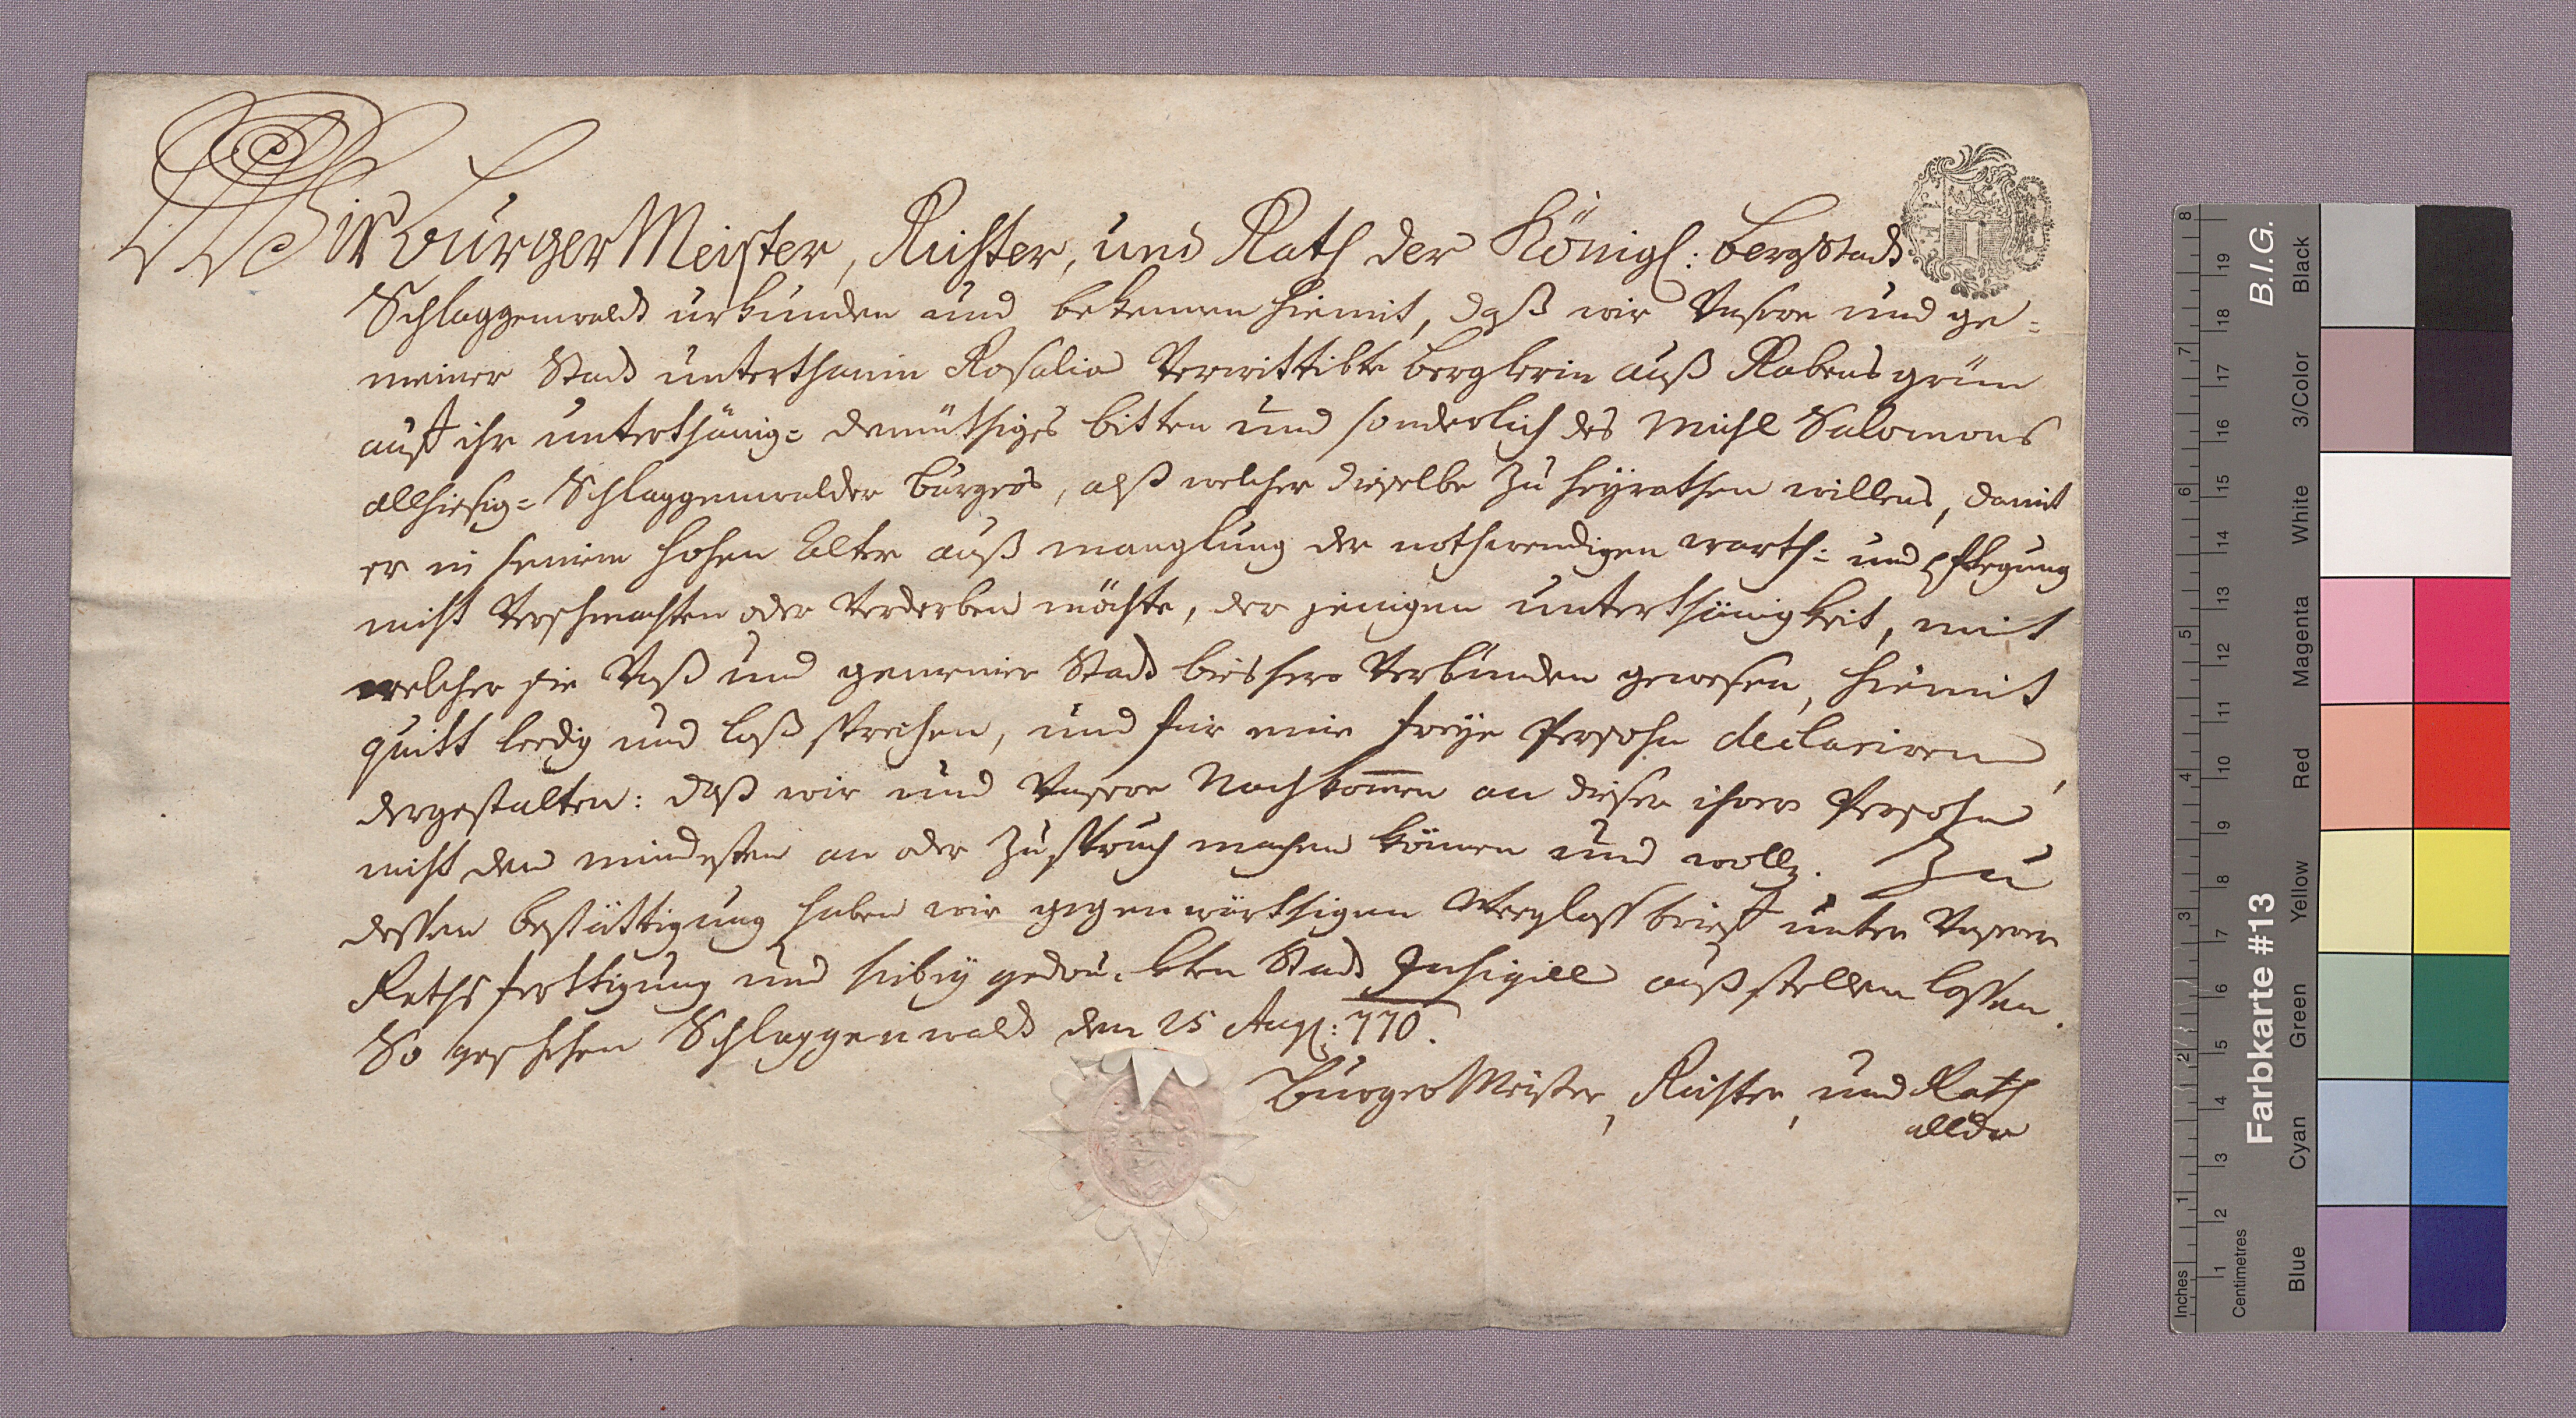 Wir Burger Meister, Richter, und Rath der Königl: Bergstadt
Schlaggenwaldt urkunden und bekennen hiemit, daß wir Unsere und ge=
meiner Stadt unterthanin Rosalia Verwittibte Berglerin auß Rabensgrün
auf ihr unterthänig= demüthiges bitten und sonderlich des Michl Salomons
allhiesig= Schlaggenwalder Burgers, alß welcher dieselbe zu heyrathen willens, damit
er in seinem hohen Alter auß manglung der nothwendigen warth= und pflegung
nicht Verschmachten oder Verderben möchte, der jenigen unterthänigkeit, mit
welcher sie Unß und gemeiner Stadt bishero Verbunden gewesen, hiemit
quitt leedig und loß sprechen, und für eine freye Persohn declariren,
dergestalten: daß wir und Unsere Nachkom̄en an dieser ihrer Persohn
nicht den mindesten an oder Zuspruch machen können und wollen. Zu
dessen bestättigung haben wir gegenwärthigen Weeglaßbrief unter Unserer
Rathsferttigung und hiebey gedruckten Stadt Insigill außstellen lassen.
So geschehen Schlaggenwaldt den 25 Aug: 770.
Burger Meister, Richter, und Rath
allda
Inches
Centimetres
1
2
3
4
5
6
7
8
1
2
3
4
5
6
7
8
9
10
11
12
13
14
15
16
17
18
19
Farbkarte #13
B.I.G.
Blue
Cyan
Green
Yellow
Red
Magenta
White
3/Color
Black